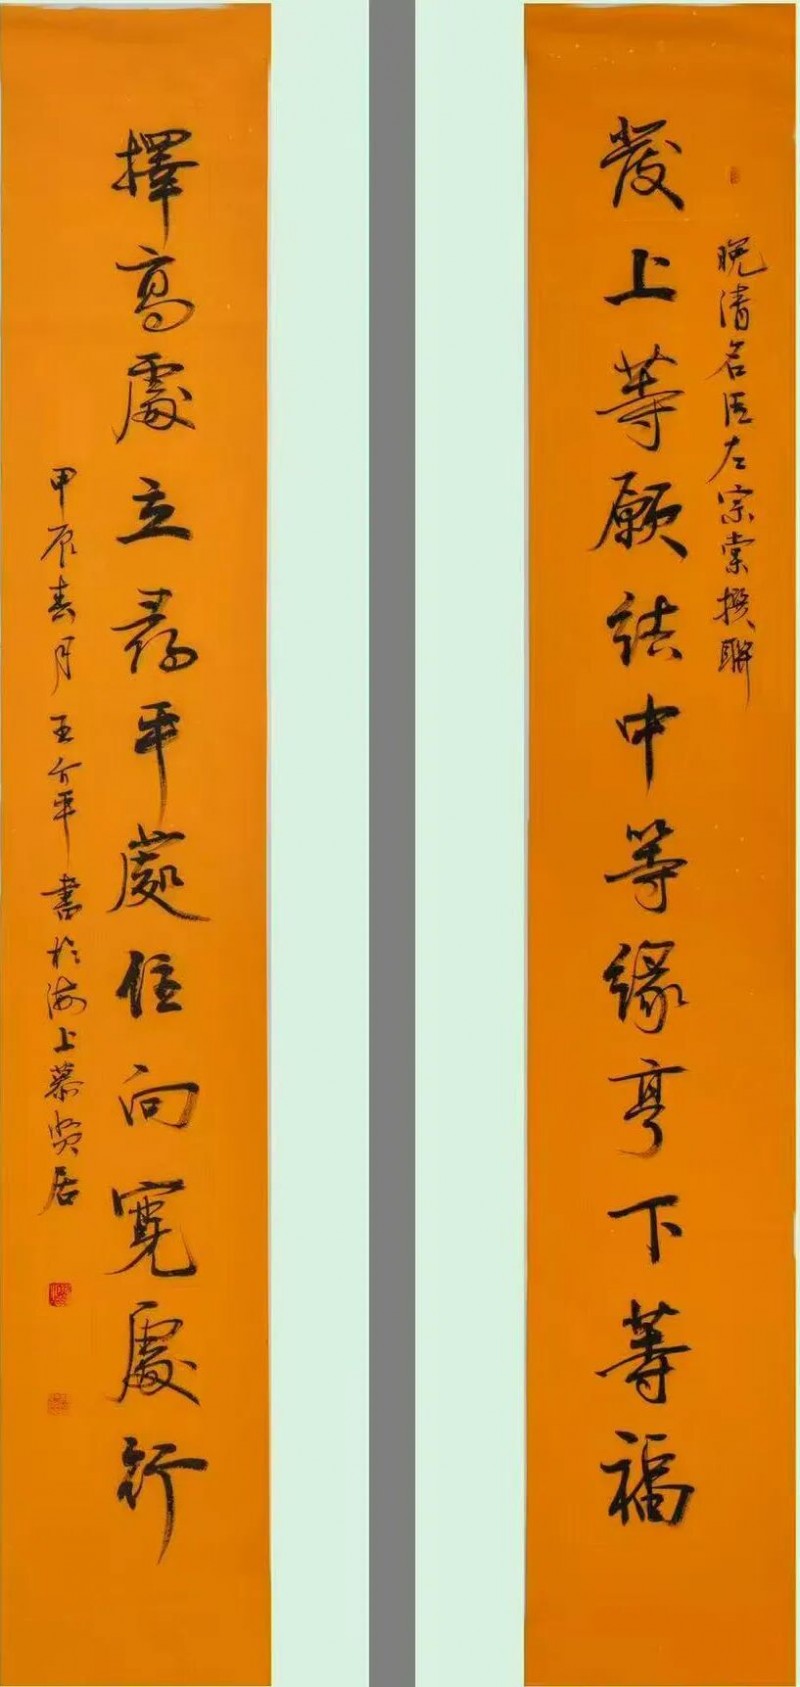 晚清名臣左宗棠撰聯
發上等願結中等緣享下等福
擇高處立尋平處住向寬處行
甲辰春月王介平書於海上慕賢居